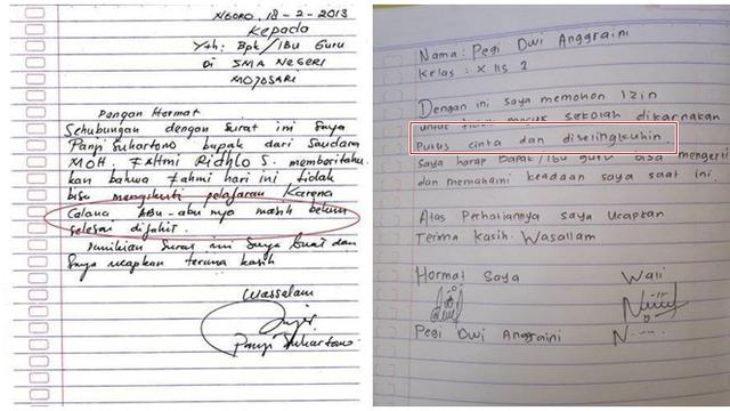 NGORO, 18 - 2 - 2013
Kepada
Yth: Bpk/Ibu Guru
Di SMA NEGERI
MOJOSARI
Dengan Hormat
Sehubungan dengan Surat ini Saya
Panji Suhartono bapak dari Saudara
MOH. FAHMI Ridhlo S. memberitahu
kan bahwa Fahmi hari ini tidak
bisa mengikuti pelajaran Karena
Celana Abu-abu nya masih belum
selesai dijahit.
Demikian Surat ini Saya buat dan
Saya ucapkan terima kasih
Wassalam
Panji Suhartono
Nama: Pegi Dwi Anggraini
Kelas : X IIS 2
Dengan ini saya memohon izin
untuk tidak masuk sekolah dikarnakan
Putus cinta dan diselingkuhin.
Saya harap Bapak/Ibu guru bisa mengerti
dan memahami keadaan saya saat ini.
Atas Perhatiannya saya ucapkan
Terima Kasih. Wasallam
Hormat Saya Wali
Pegi Dwi Anggraini